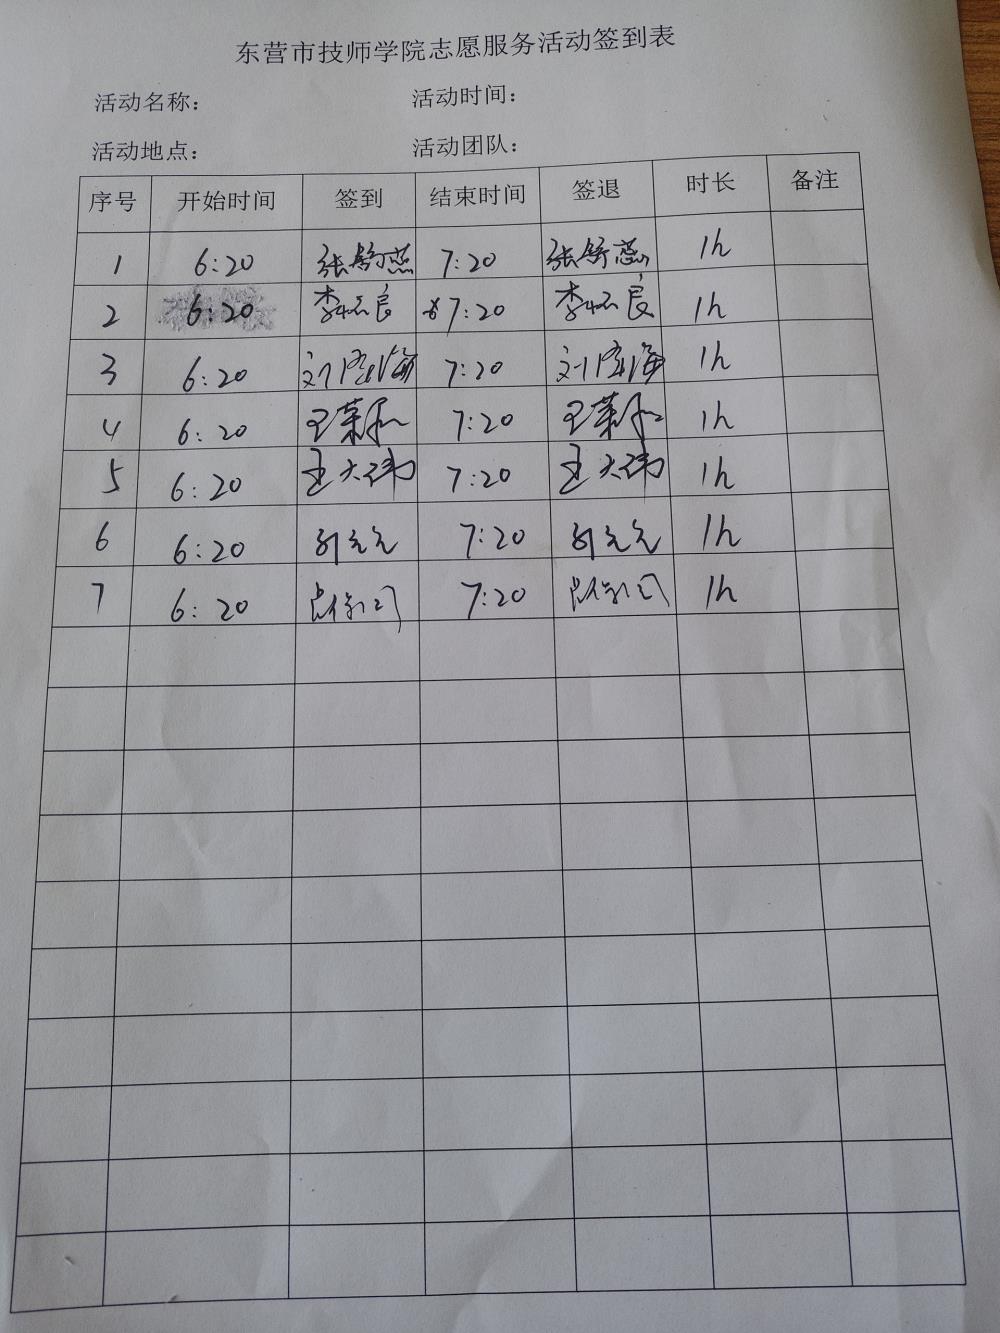 东营市技师学院志愿服务活动签到表
活动名称： 活动时间：
活动地点： 活动团队：
序号 开始时间 签到 结束时间 签退 时长 备注
1 6:20 张舒蕊 7:20 张舒蕊 1h
2 6:20 李 良 7:20 李 良 1h
3 6:20 刘 海 7:20 刘 海 1h
4 6:20 王荣 7:20 王荣 1h
5 6:20 王大伟 7:20 王大伟 1h
6 6:20 元元 7:20 元元 1h
7 6:20 7:20 1h